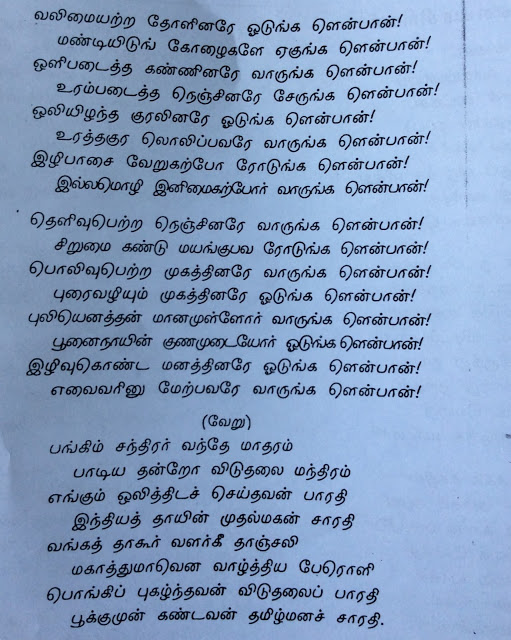 வலிமையற்ற தோளினரே ஓடுங்க ளென்பான்!
மண்டியிடுங் கோழைகளே ஏகுங்க ளென்பான்!
ஒளிபடைத்த கண்ணினரே வாருங்க ளென்பான்!
உரம்படைத்த நெஞ்சினரே சேருங்க ளென்பான்!
ஒலியிழந்த குரலினரே ஓடுங்க ளென்பான்!
உரத்தகுர லொலிப்பவரே வாருங்க ளென்பான்!
இழிபாசை வேறுகற்போ ரோடுங்க ளென்பான்!
இல்லமொழி இனிமைகற்போர் வாருங்க ளென்பான்!
தெளிவுபெற்ற நெஞ்சினரே வாருங்க ளென்பான்!
சிறுமை கண்டு மயங்குபவ ரோடுங்க ளென்பான்!
பொலிவுபெற்ற முகத்தினரே வாருங்க ளென்பான்!
புரைவழியும் முகத்தினரே ஓடுங்க ளென்பான்!
புலியெனத்தன் மானமுள்ளோர் வாருங்க ளென்பான்!
பூனைநாயின் குணமுடையோர் ஓடுங்க ளென்பான்!
இழிவுகொண்ட மனத்தினரே ஓடுங்க ளென்பான்!
எவைவரினு மேற்பவரே வாருங்க ளென்பான்!
(வேறு)
பங்கிம் சந்திரர் வந்தே மாதரம்
பாடிய தன்றோ விடுதலை மந்திரம்
எங்கும் ஒலித்திடச் செய்தவன் பாரதி
இந்தியத் தாயின் முதல்மகன் சாரதி
வங்கத் தாகூர் வளர்கீ தாஞ்சலி
மகாத்துமாவென வாழ்த்திய பேரொளி
பொங்கிப் புகழ்ந்தவன் விடுதலைப் பாரதி
பூக்குமுன் கண்டவன் தமிழ்மனச் சாரதி.